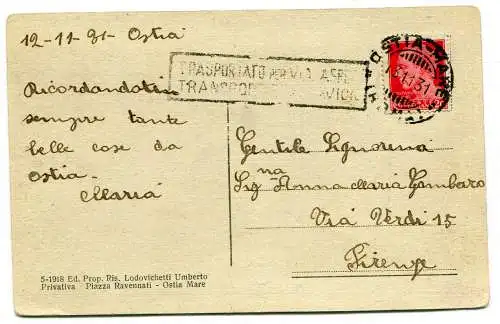 12-11-31- Ostia
Ricordandoti
sempre tante
belle cose da
Ostia-
Maria
TRASPORTATO PER VIA AEREA
TRANSPOR AVION
OSTIA-MARE
11.31
(ROMA)
Gentile Signorina
Sig na Anna Maria Gambaro
Via Verdi 15
Firenze
5-1918 Ed. Prop. Ris. Lodovichetti Umberto
Privativa Piazza Ravennati - Ostia Mare